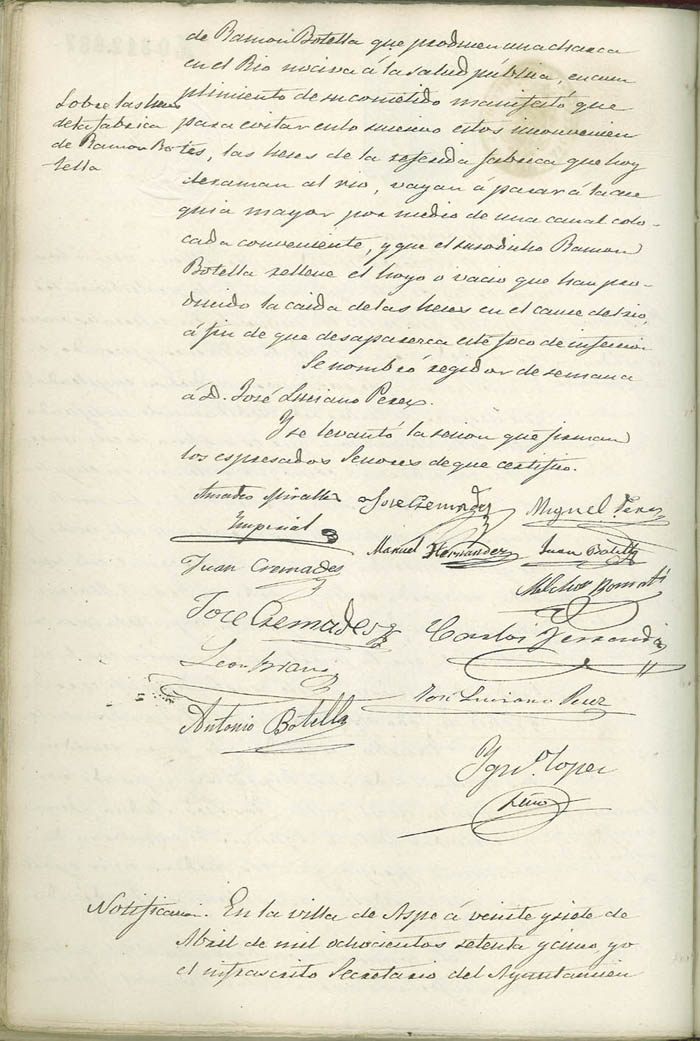 de Ramon Botella que producen una charca
en el Rio nociva á la salud pública, en cum
plimiento de su cometido manifestó que
Sobre las heces
de la fabrica
de Ramon Bo-
tella
para evitar en lo sucesivo estos inconvenien
tes, las heces de la referida fabrica que hoy
deraman al rio, vayan á parar á la ace
quia mayor por medio de una canal colo-
cada conveniente, y que el susodicho Ramon
Botella rellene el hoyo o vacio que han pro-
ducido la caida de las heces en el cauce del rio,
á fin de que desaparezca este foco de infeccion
Se nombró regidor de semana
á D. José Luciano Perez.
Y se levantó la sesion que firman
los espresados Señores de que certifico.
Amadeo Miralles José Cremades Miguel Perez
Imperial Manuel Hernandez Juan Botella
Juan Cremades Melchor
José Cremades Carlos
Antonio Botella José Luciano Perez
Ygn.º Lopez
Srio
Notificacion. En la villa de Aspe á veinte y siete de
Abril de mil ochocientos setenta y cinco, yo
el infrascrito Secretario del Ayuntamien